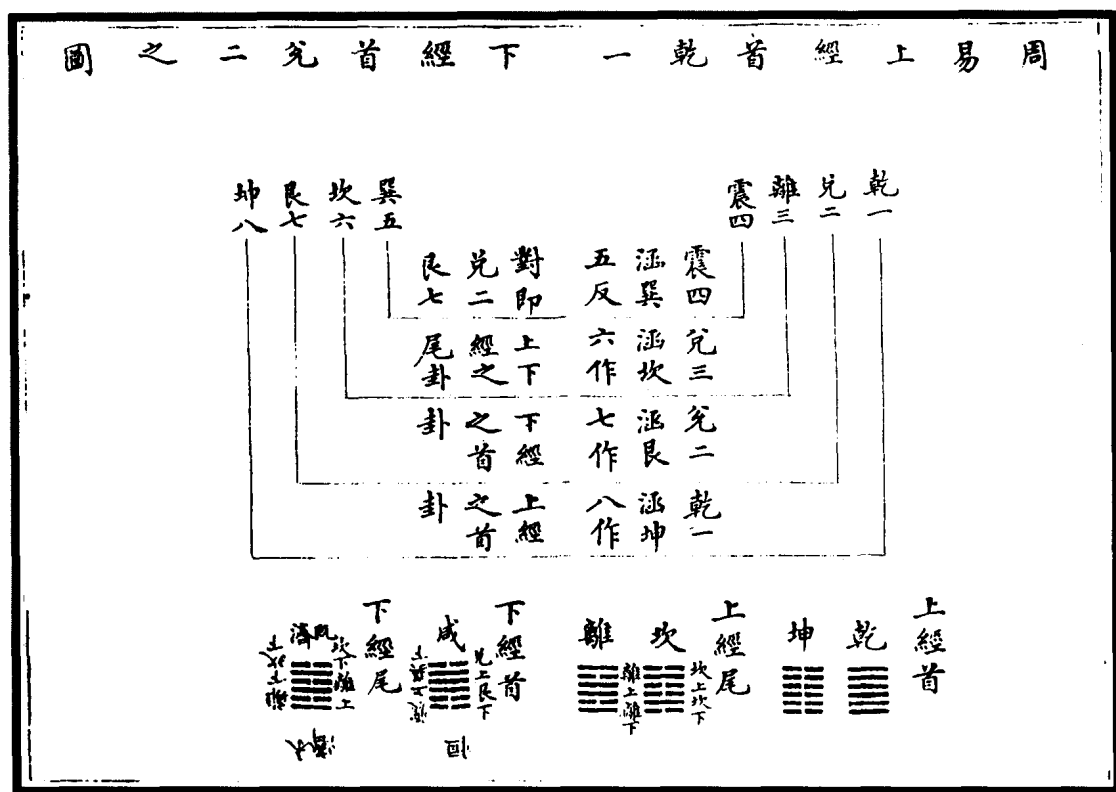 周易上經首乾一 下經首兌二之圖
乾一
兌二
離三
震四
巽五
坎六
艮七
坤八
震四涵巽五反對即兌二艮七
兌三涵坎六作上下經之尾卦
兌二涵艮七作下經之首卦
乾一涵坤八作上經之首卦
上經首
乾
坤
上經尾
坎
坎上坎下
離
離上離下
下經首
咸
兌上艮下
恒
下經尾
既濟
坎下離上
未濟